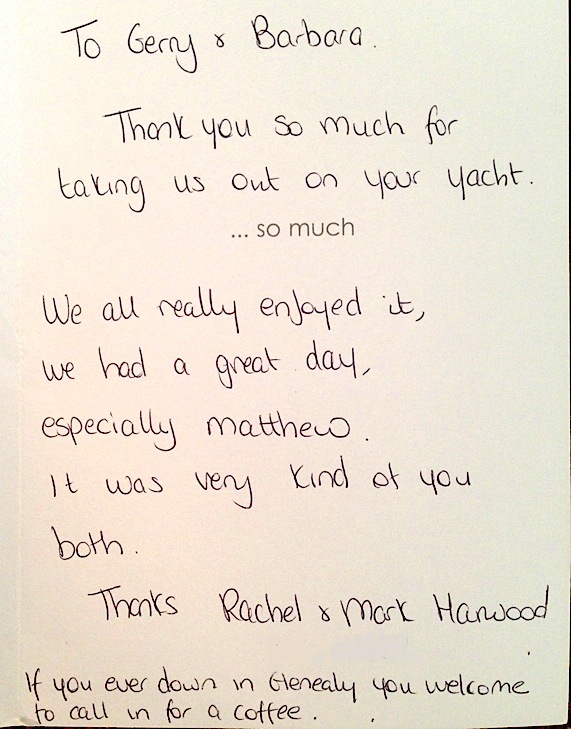 To Gerry & Barbara.
Thank you so much for
taking us out on your yacht.
... so much
We all really enjoyed it,
we had a great day,
especially matthew.
It was very kind of you
both.
Thanks Rachel & Mark Harwood
If you ever down in Glenealy you welcome
to call in for a coffee.